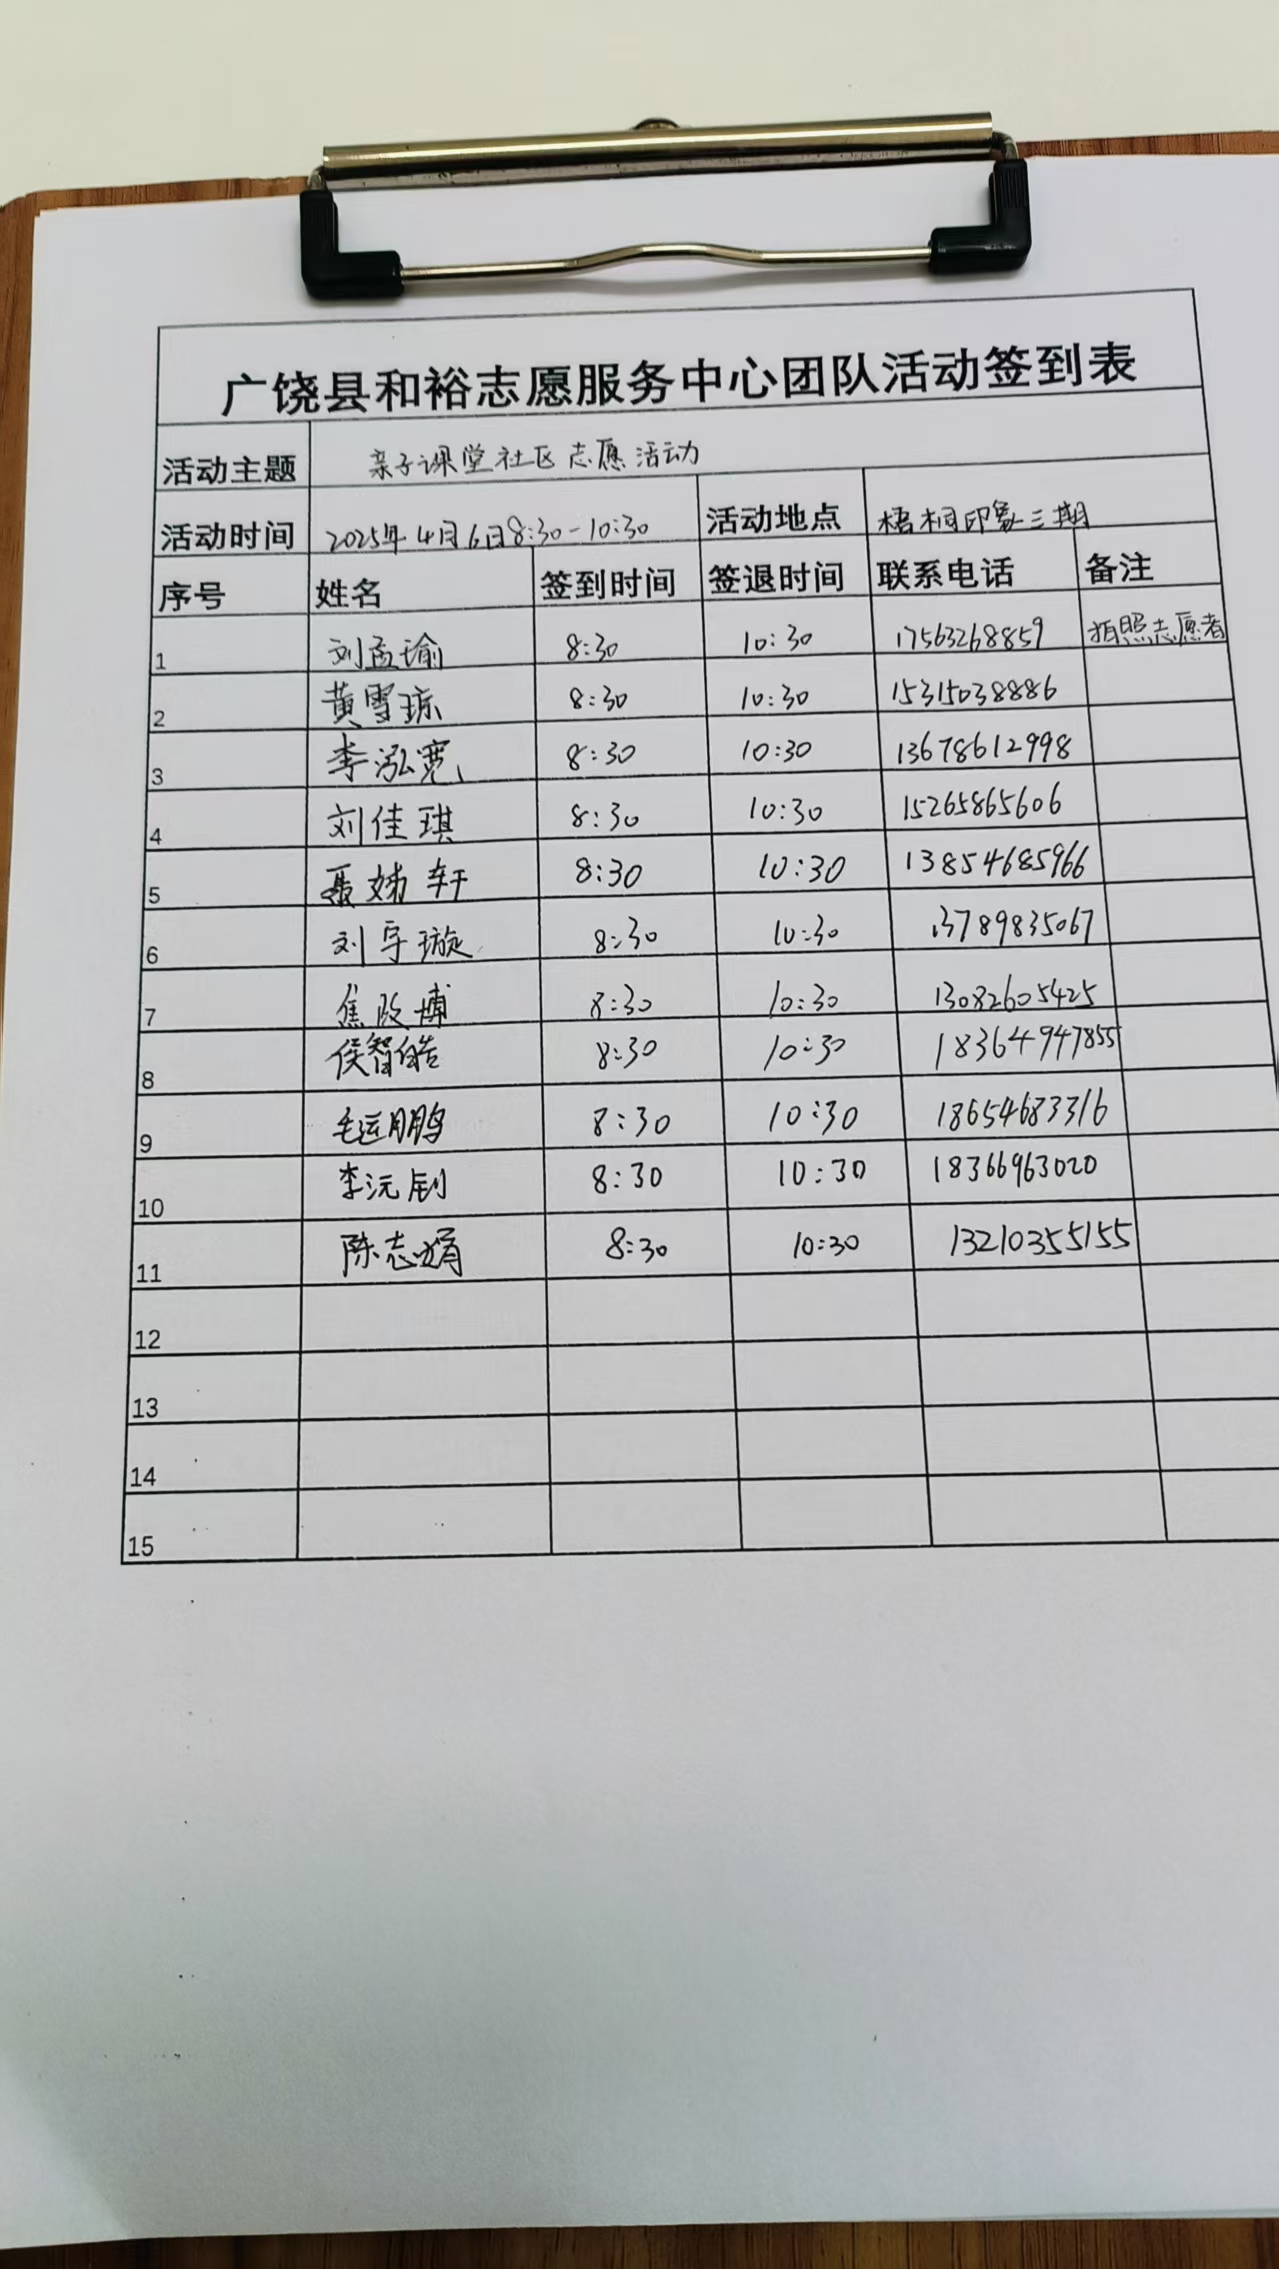 广饶县和裕志愿服务中心团队活动签到表
活动主题 亲子课堂社区志愿活动
活动时间 2025年4月6日8:30-10:30 活动地点 梧桐印象三期
序号 姓名 签到时间 签退时间 联系电话 备注
1 刘孟瑜 8:30 10:30 17563268859 拍照志愿者
2 黄雪琼 8:30 10:30 15315038886
3 李泓宽 8:30 10:30 13678612998
4 刘佳琪 8:30 10:30 15265865606
5 聂姊轩 8:30 10:30 13854685966
6 刘宇璇 8:30 10:30 13789835067
7 焦政博 8:30 10:30 13082605425
8 侯智皓 8:30 10:30 18364947855
9 毛运鹏 8:30 10:30 18654683316
10 李沅钊 8:30 10:30 18366963020
11 陈志娟 8:30 10:30 13210355155
12
13
14
15